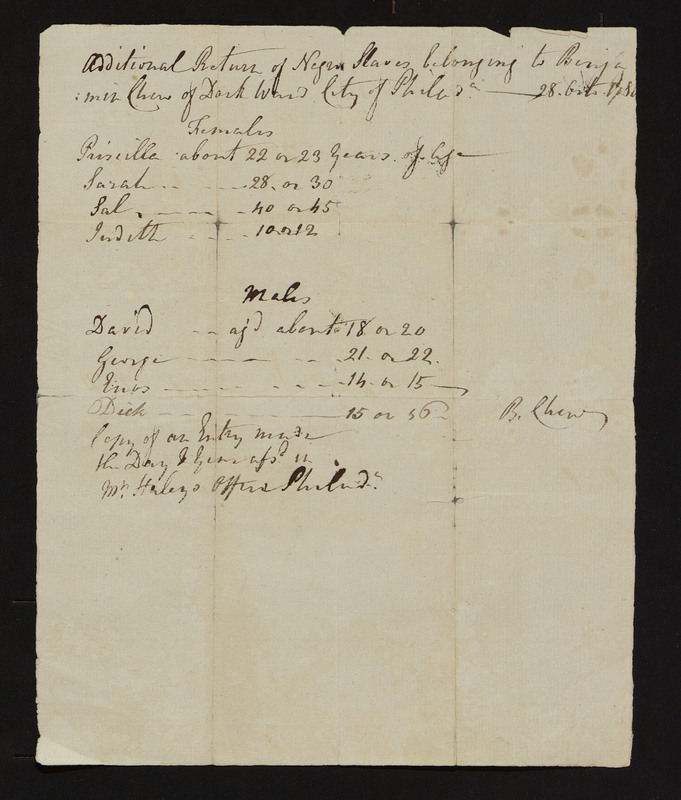 Additional Return of Negro Slaves belonging to Benja
:min Chew of Dock Ward City of Philad.a — 28. Octr. 1780
Females
Priscilla about 22 or 23 Years of Age
Sarah 28. or 30
Sal 40 or 45
Judith 10 or 12
Males
David aj'd about 18 or 20
George 21. or 22.
14. or 15
Dick 15 or 16
B. Chew
Copy of an Entry made
the Day & Year afsd in
Mr. Office Philad.a